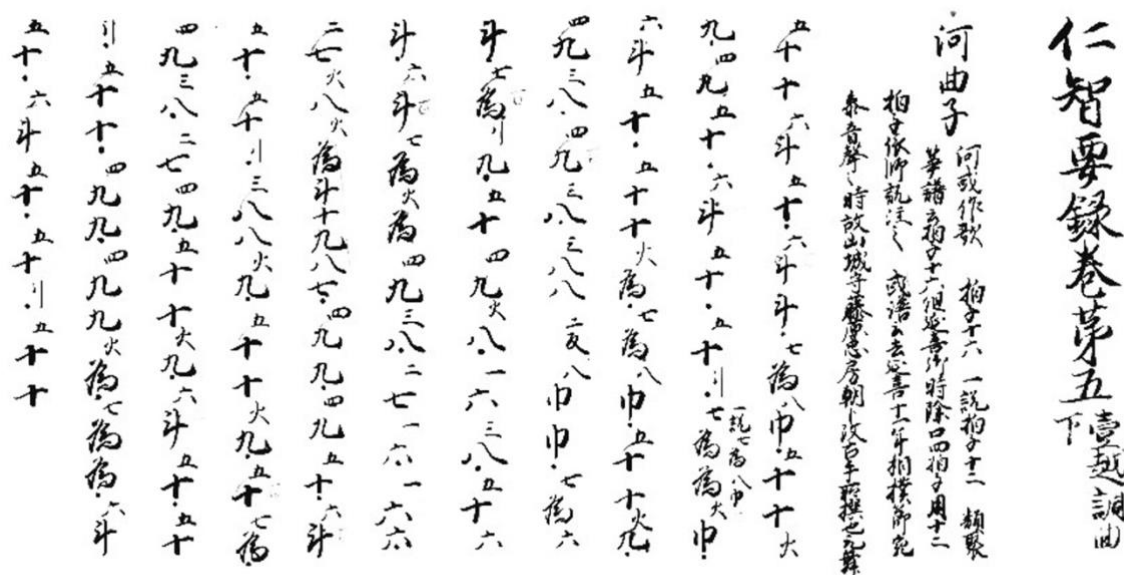 仁智要録巻第五 壹越調曲下
河曲子 河或作歌 拍子十六 一説拍子十二 類聚
箏譜云拍子十六但延喜御時除口四拍子用十二
拍子依師説注之 或譜云去延喜十一年相撲御覧
奏音聲之時故山城守藤原忠房朝臣改古手所撰也无舞
五十十六斗五十・六斗斗・七為八巾・五十十火
一説七為八巾
九・四九・五十・六斗・五十・五十引・七為為火巾・
六斗五十・五十十火為・七為八巾・五十十火九・
四九三八・四九三八・三八八二反八巾巾・七為六
斗・七為引九・五十四九火八・一六三八・五十六
斗・六斗七為火為・四九三八・二七一六・一六六
二七火八火為斗十九八七・四九九・四九五十・六斗
五十・五十引三八八火九・五十十火九・五十七為・
四九三八・二七四九・五十十火九・六斗五十・五十
引・五十十・四九九・四九九火為・七為為・六斗
五十・六斗五十・五十引・五十十